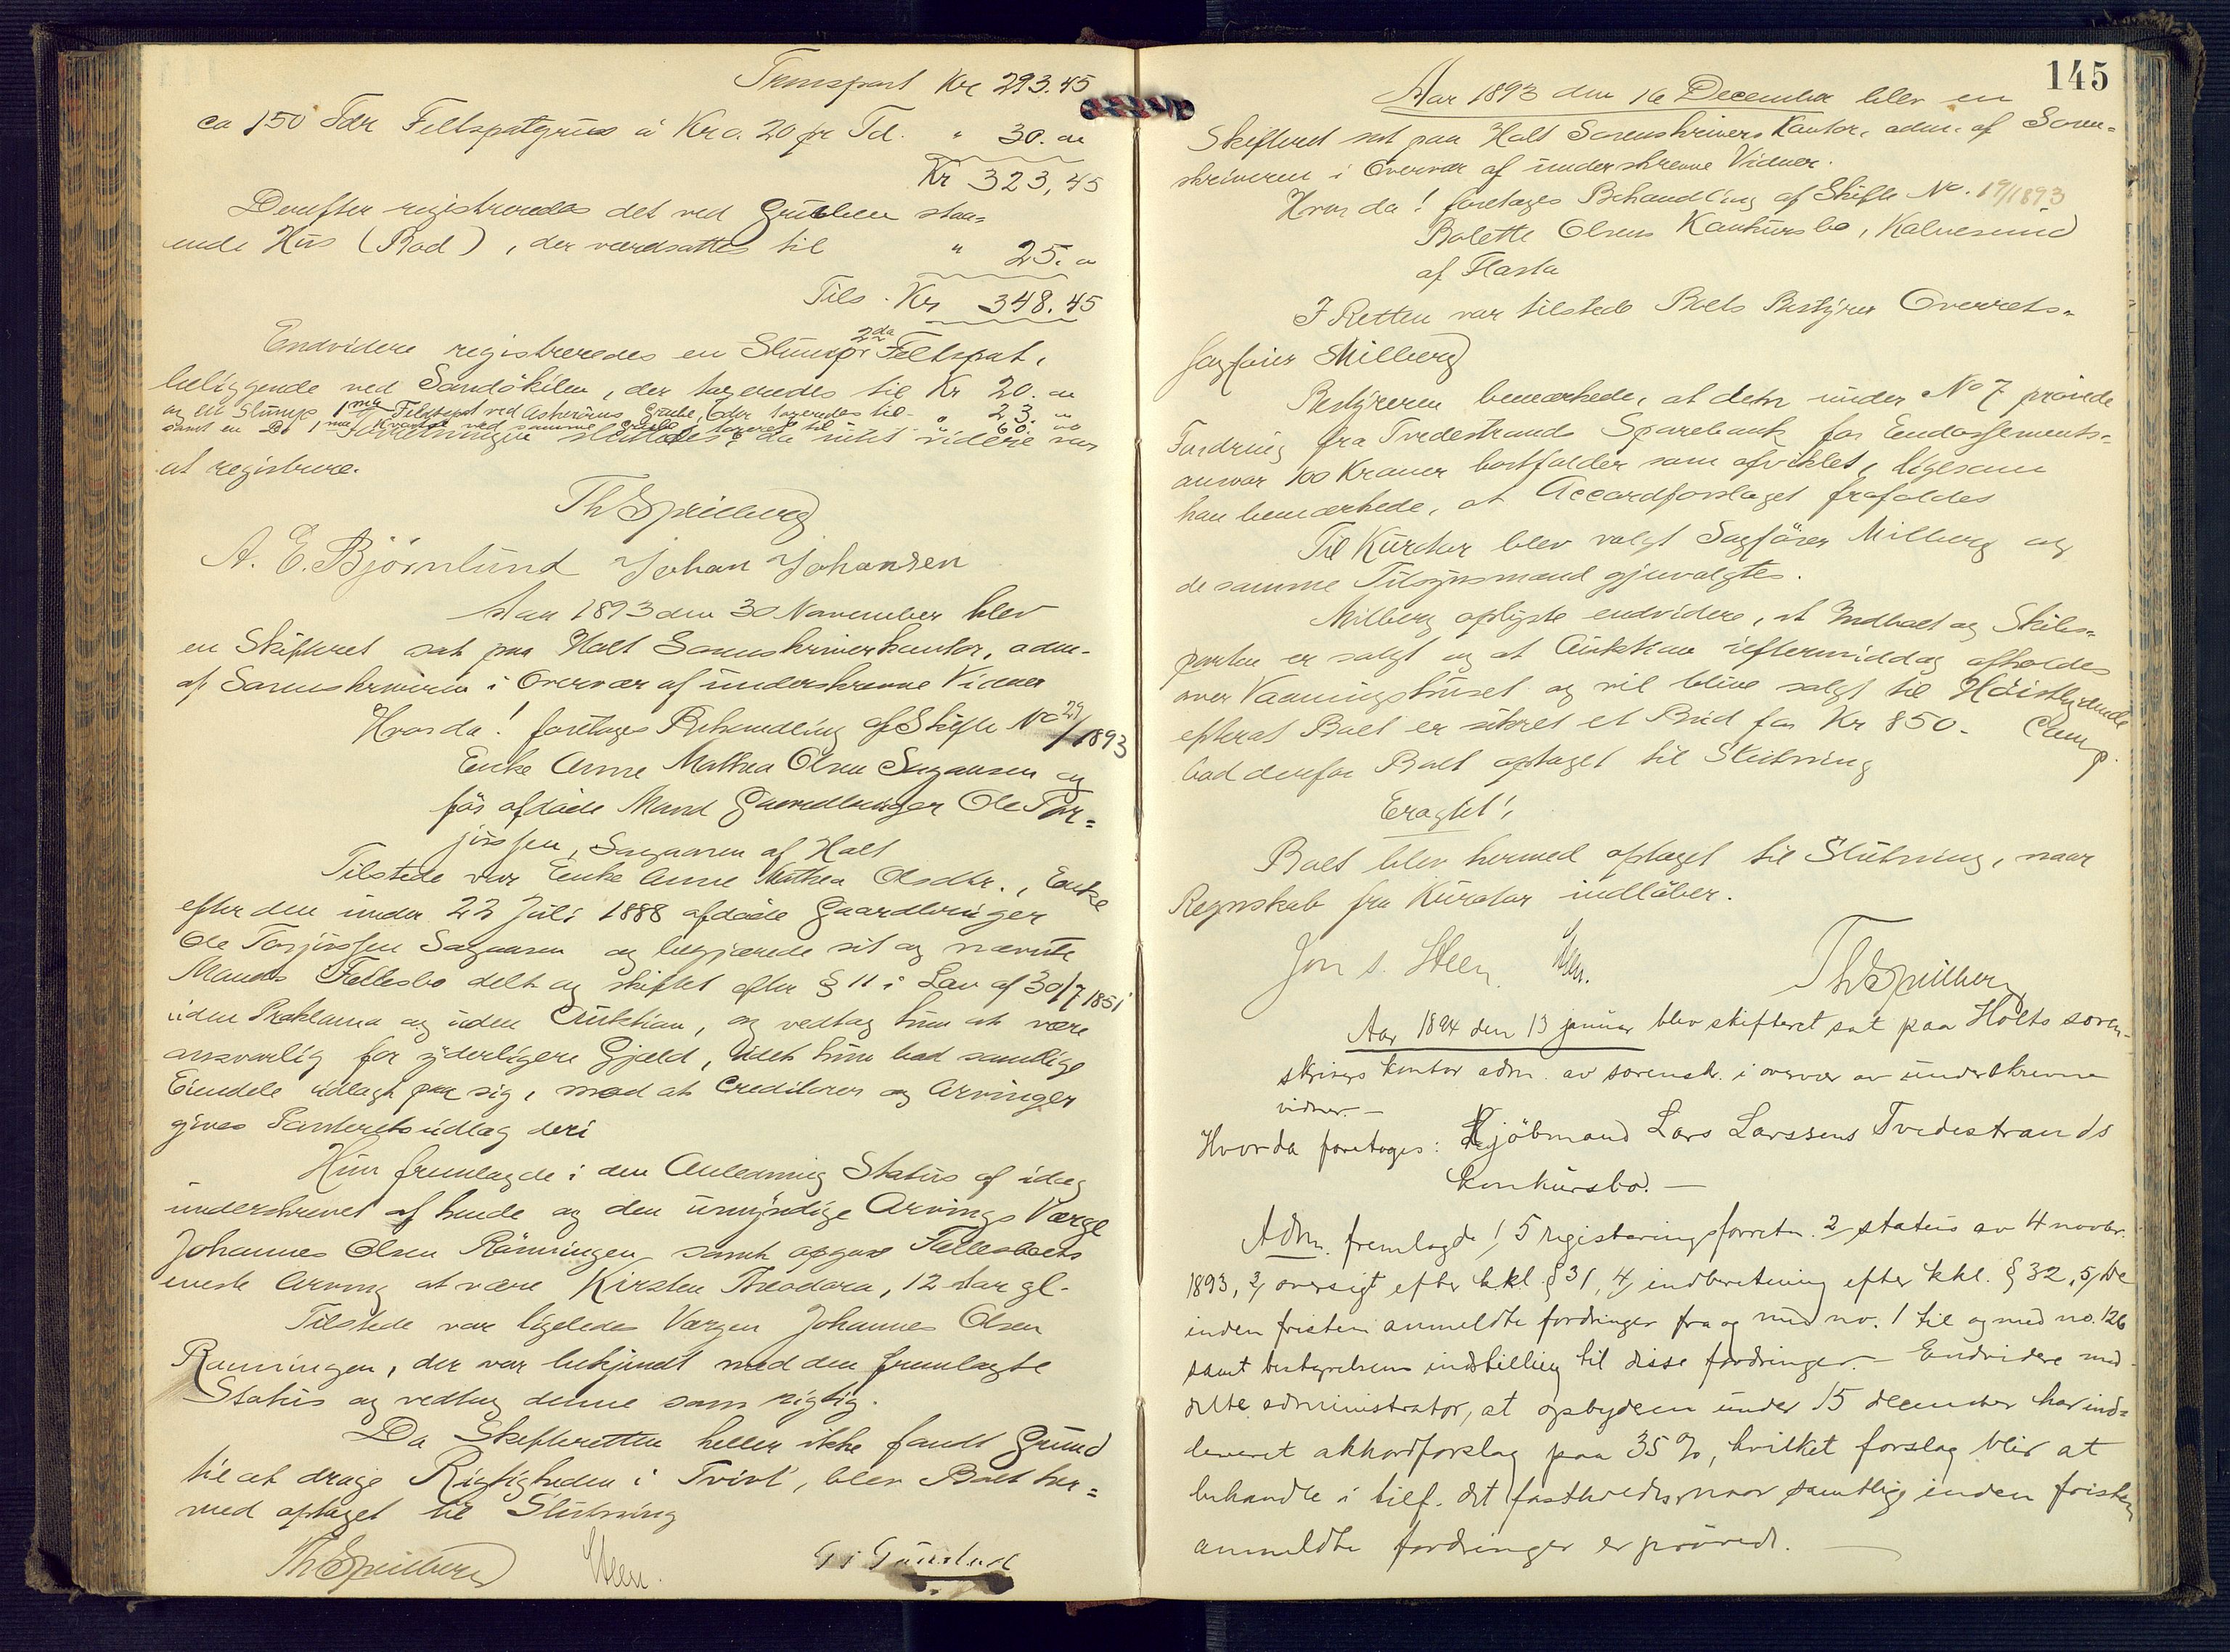 Transport Kr 293.45
ca 150 Tdr Feltspatgrus à Kr 0.20 pr Td. " 30. "
Kr 323,45
Derefter registreredes det ved Gruben staa=
ende Hus (Bod), der værdsattes til " 25. "
Tils. Kr 348.45
Endvidere registreredes en Slump 2da Feltspat,
beliggende ved Sandökilen, der taxeredes til Kr 20. "
og en Slump 1ma Feltspat ved Grube, der taxeredes til " 23. "
samt en Do 1ma Kvarts ved samme Grube, taxeret til " 60. "
Forretningen sluttedes, da intet videre var
at registrere.
Th Spilberg
A. E. Björnlund Johan Johansen
Aar 1893 den 30 November blev
en Skifteret sat paa Holt Sorenskriverkontor, adm.
af Sorenskriveren i Overvær af underskrevne Vidner
Hvor da! foretoges Behandling af Skifte No 29/1893
Enke Anne Mathea Olsen Sagaasen og
før afdøde Mand Gaardbruger Ole Tor=
jussen, Sagaasen af Holt
Tilstede var Enke Anne Mathea Olsdtr., Enke
efter den under 22 Juli 1888 afdøde Gaardbruger
Ole Torjussen Sagaasen og begjærede sit og nævnte
Mands Fællesbo delt og skiftet efter § 11 i Lov af 30/7 1851
uden Proklama og uden Auktion, og vedtog hun at være
ansvarlig for yderligere Gjæld, idet hun bad samtlige
Eiendele udlagt paa sig, mod at Creditorer og Arvinger
gives Panteretsudlæg deri
Hun fremlagde i den Anledning Status af idag
underskrevet af hende og den umyndige Arvings Værge
Johannes Olsen Rönningen samt opgav Fællesboets
eneste Arving at være Kirsten Theodora, 12 Aar gl.
Tilstede var ligeledes Værgen Johannes Olsen
Rønningen, der var bekjendt med den fremlagte
Status og vedtog denne som rigtig.
Da Skifteretten heller ikke fandt Grund
til at drage Rigtigheden i Tvivl, blev Boet her=
med optaget til Slutning
Th Spilberg Steen. G
145
Aar 1893 den 16 December blev en
Skifteret sat paa Holt Sorenskrivers Kontor, adm. af Soren=
skriveren i Overvær af underskrevne Vidner.
Hvor da! foretoges Behandling af Skifte No. 19/1893
Bolette Olsens Konkursbo, Kalvesund
af Flosta
I Retten var tilstede Boets Bestyrer Overrets=
sagfører Milberg
Bestyreren bemærkede, at den under No 7 prøvede
Fordring fra Tvedestrands Sparebank for Endossements=
ansvar 100 Kroner bortfalder som afviklet, ligesom
han bemærkede, at Accordforslaget frafaldes
Til Kurator blev valgt Sagfører Milberg og
de samme Tilsynsmænd gjenvalgtes.
Milberg oplyste endvidere, at Indboet og Skibs=
parten er solgt og at Auktion i eftermiddag afholdes
over Vaaningshuset og vil blive solgt til Høistbydende
efterat Boet er sikret et Bud for Kr 850. Comp.
bad derfor Boet optaget til Slutning
Eragtet!
Boet blev hermed optaget til Slutning, naar
Regnskab fra Kurator indløber.
Jon S. Steen. Steen. Th Spilberg
Aar 1894 den 13 januar blev skifteret sat paa Holts soren-
skrivers kontor adm. av sorenskr. i overvær av underskrevne
vidner. —
Hvorda foretoges: Kjöbmand Lars Larssens Tvedestrands
konkursbo. —
Adm. fremlagde 1, 5 registeringsforretn. 2, status av 4 novbr.
1893, 3, oversigt efter kkl. § 31, 4, indberetning efter kkl. § 32, 5, De
inden fristen anmeldte fordringer fra og med no. 1 til og med no. 126
samt bestyrelsens indstilling til disse fordringer. — Endvidere med-
delte administrator, at opbyderen under 15 december har ind=
leveret akkordforslag paa 35 %, hvilket forslag blir at
behandle i tilf. det fastholdes, naar samtlige inden fristen
anmeldte fordringer er prövede. —